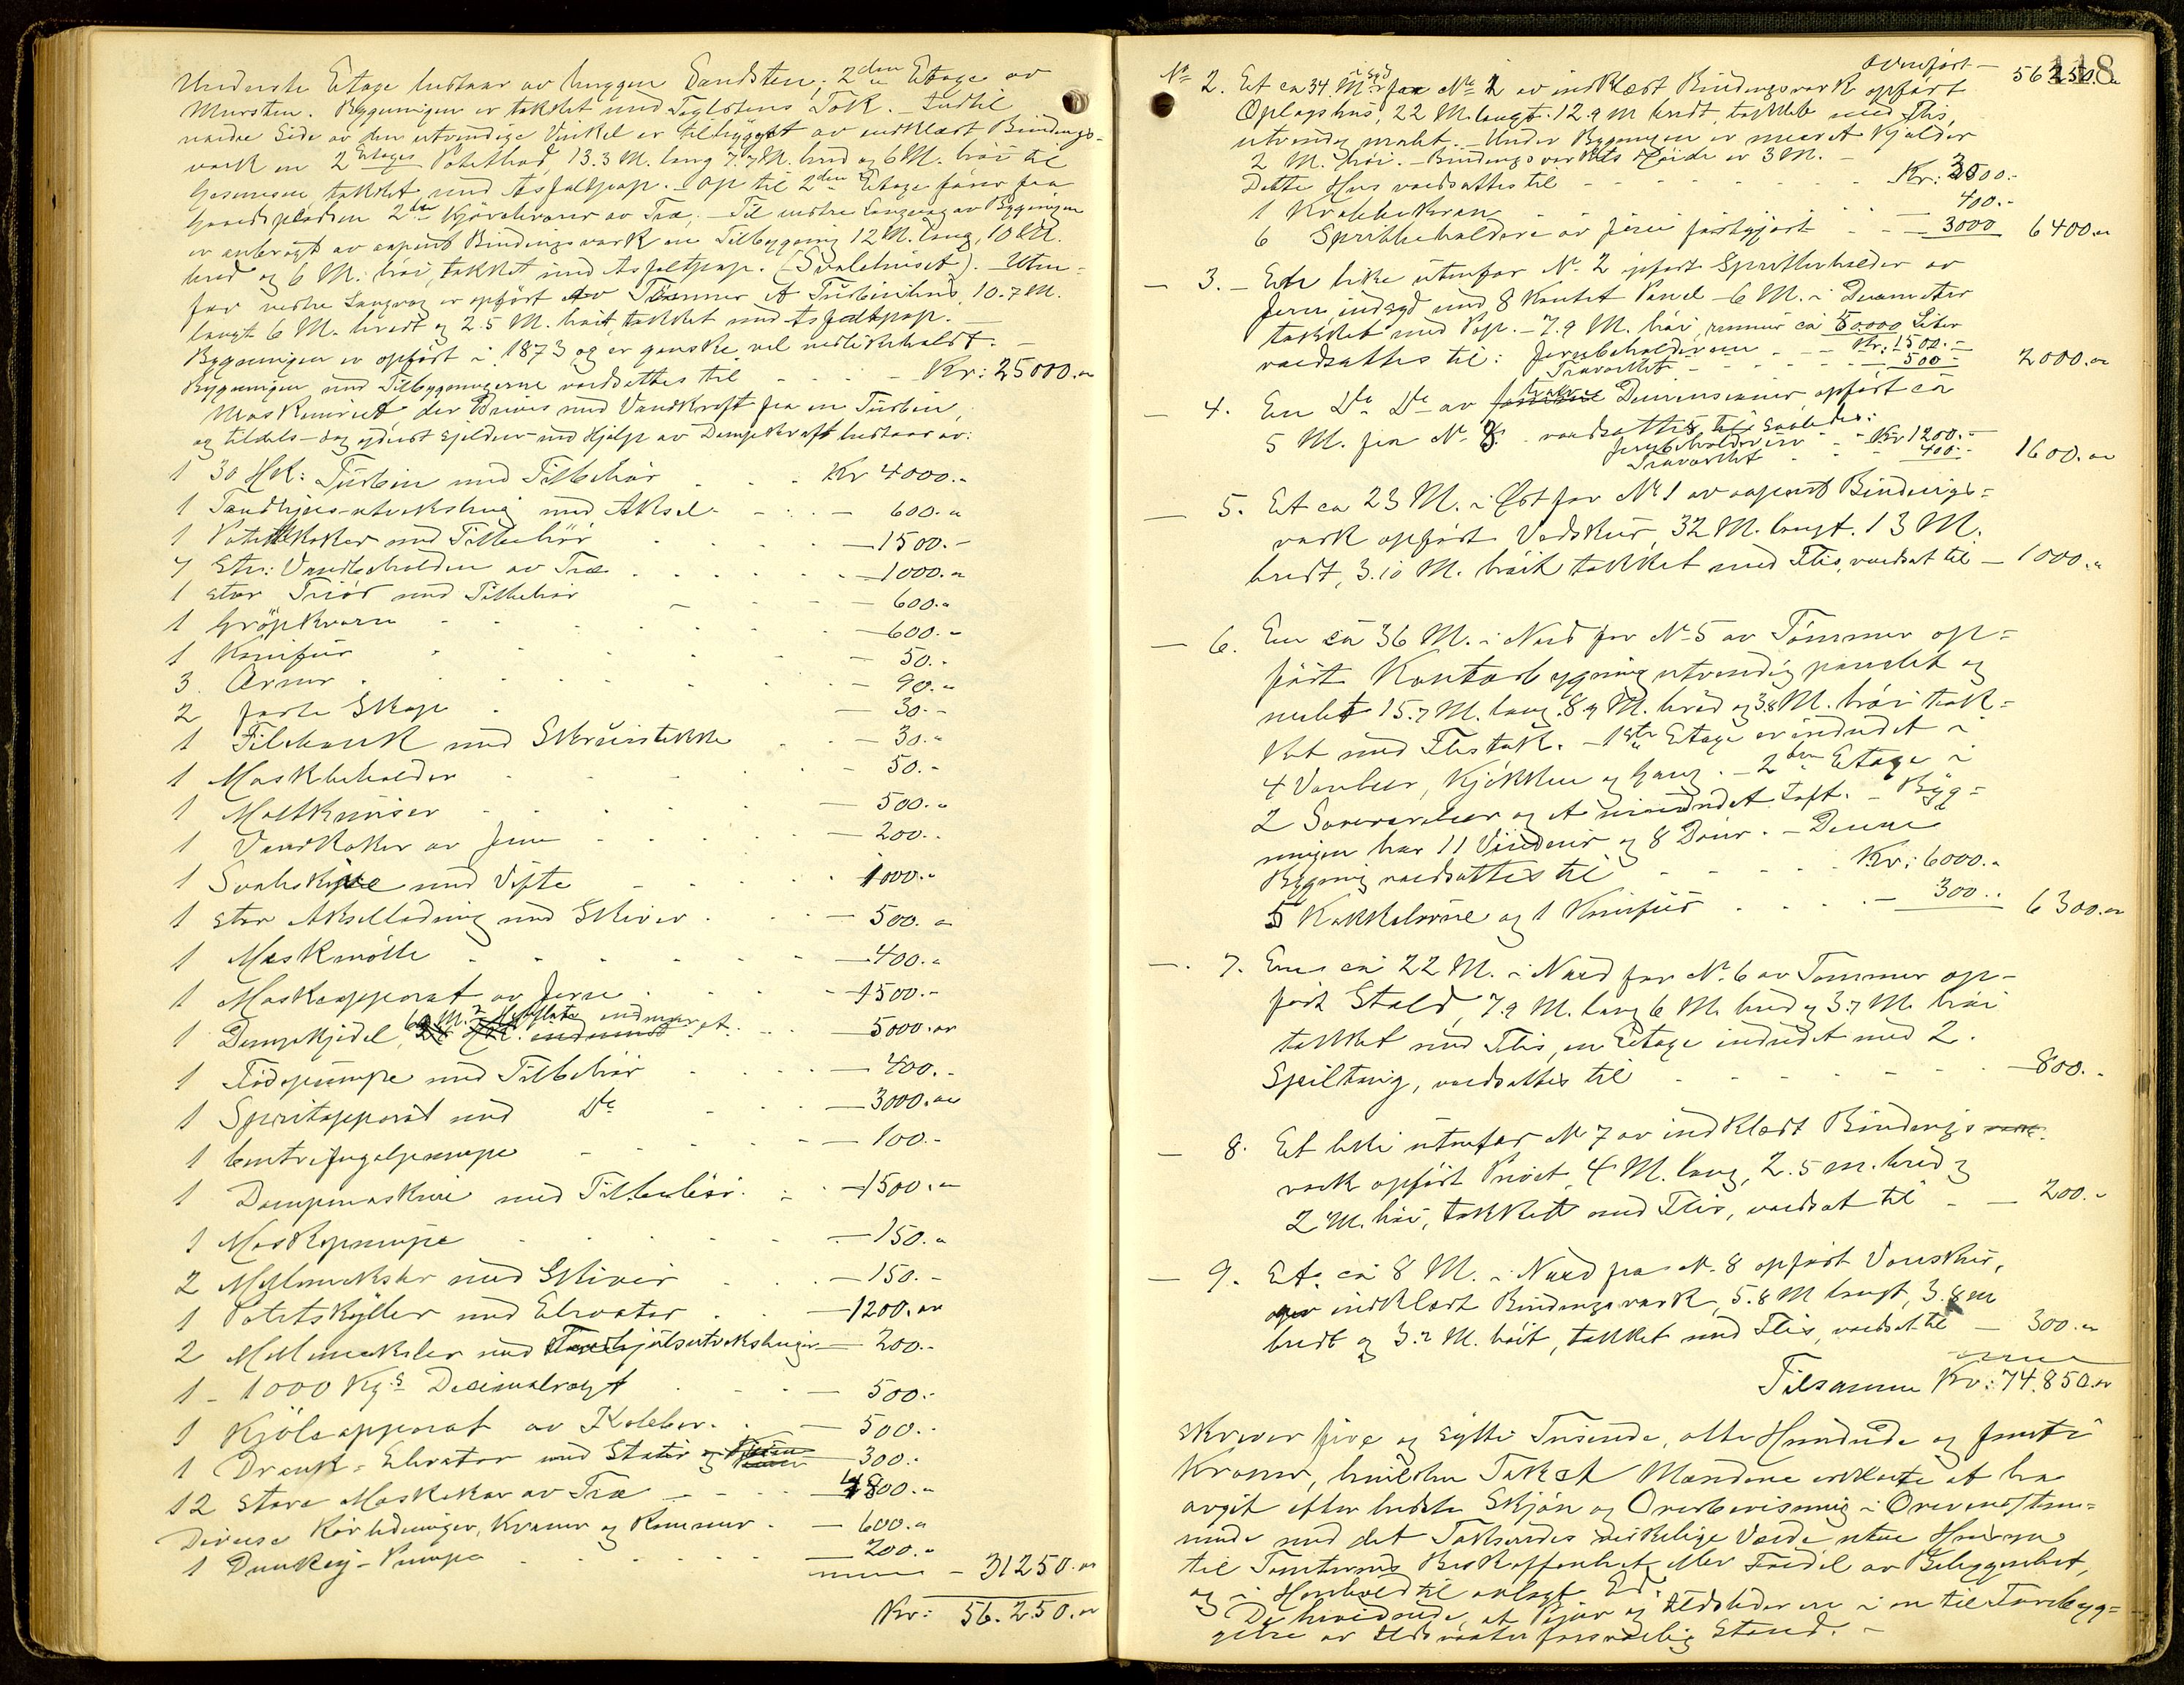 Underste Etage bestaar av huggen Sandsten, 2den Etage av
Mursten. Bygningen er tækket med Taglstens Tak. Indtil
nordre Side av den utvendige Vinkel er tilbygget av indklædt Bindings-
værk en 2 Etages Potetbod, 13.3 M. lang 7.7 M. bred og 6 M. høi til
Gesimsen, tækket med Asfaltpap. - Op til 2den Etage fører fra
Gaardspladsen 2de Kjørebroer av Træ. - Til vestre Langvæg av Bygningen
er anbragt av aapent Bindingsværk en Tilbygning 12 M. lang, 10 M.
bred og 6 M. høi, tækket med Asfaltpap. (Svalehuset). - Uten-
for vestre Langvæg er opført av Tømmer et Turbinhus, 10.7 M.
langt 6 M. bredt og 2.5 M. høit, tækket med Asfaltpap. -
Bygningen er opført i 1873 og er ganske vel vedlikeholdt. -
Bygningen med Tilbygningerne værdsættes til - - - Kr: 25000.00
Maskineriet der drives med Vandkraft fra en Turbin,
og tildels - dog yderst sjelden - med Hjelp av Dampkraft bestaar av:
1 30 Hk: Turbin med Tilbehør . . . Kr 4000.-
1 Tandhjuls-utveksling med Aksel - - - 600.-
1 Potetkoker med Tilbehør - 1500.-
7 Stk: Vandbeholdere av Træ - 1000.-
1 stor Triør med Tilbehør - 600.-
1 Grøpkvern - 600.-
1 Komfur - 50.-
3 Ovner - 90.-
2 faste Skap - 30.-
1 Filebænk med Skruestikke - 30.-
1 Maskbeholder - 50.-
1 Maltknuser - 500.-
1 Vandkoker av Jern - 200.-
1 Svaleskive med Vifte - 1000.-
1 stor Akselledning med Skiver - 500.-
1 Maskmølle - 400.-
1 Maskeapparat av Jern - 1500.-
1 Dampkjedel, 60 M.2 Hedeflate indmuret - 5000.00
1 Fødepumpe med Tilbehør - 400.-
1 Spritapparat med Do - 3000.00
1 Centrifugalpumpe - 100.-
1 Dampmaskine med Tilbehør - 1500.-
1 Maskpumpe - 150.-
2 Mellemaksler med Skiver - 150.-
1 Potetskyller med Elevator - 1200.00
2 Mellemaksler med Tandhjulsutvekslinger - 200.-
1 - 1000 Kg.s Decimalvægt - 500.-
1 Kjøleapparat av Kobber - 500.-
1 Drank-Elevator med Stativ - 300.-
12 store Maskekar av Træ - 4800.-
Diverse Rørledninger, Kraner og Remmer - 600.-
1 Dunkey-Pumpe - 200.- - 31250.00
Kr: 56.250.00
118
Overført - 56250.00
No 2. Et ca 34 M. i Syd for No 1 av indklædt Bindingsværk opført
Oplagshus, 22 M. langt. 12.9 M bredt, tækket med Flis,
utvendig malet. - Under Bygningen er muret Kjelder
2 M. høi. - Bindingsverkets Høide er 3 M. -
Dette Hus værdsættes til - - - Kr: 3000.-
1 Krabbekran - 400.-
6 Spritbeholdere av Jern fastgjort - - 3000 6400.00
- 3. - En like utenfor No 2 opført Spritbeholder av
Jern, indsyd med 8 Kantet Panel - 6 M. i Diameter
tækket med Pap. - 7.9 M. høi, rummer ca 80.000 Liter
værdsættes til: Jernbeholderen - - Kr: 1500.-
Træverket - - - 500 - 2000.00
- 4. En Do Do av Dimensioner opført ca
5 M. fra No 3. værdsættes saaledes:
Jernbeholderen - Kr 1200.-
Træverket - 400.- 1600.00
- 5. Et ca 23 M. i Øst for No 1 av aapent Bindings-
værk opført Vedskur, 32 M. langt. 13 M.
bredt, 3.10 M. høit tækket med Flis, værdsat til - 1000.-
- 6. En ca 36 M. i Nord for No 5 av Tømmer op-
ført Kontorbygning utvendig panelet og
malet 15.7 M. lang. 8.9 M. bred og 3.8 M. høi tæk-
ket med Flistak. - 1ste Etage er indredet i
4 Værelser, Kjøkken og Gang. - 2den Etage i
2 Soveværelser og et uindredet Loft. - Byg-
ningen har 11 Vinduer og 8 Dører. - Denne
Bygning værdsættes til - - - Kr: 6000.-
5 Kakkelovne og 1 Komfur - - - 300.- 6300.00
- 7. En ca 22 M. i Nord for No 6 av Tømmer op-
ført Stald, 7.9 M. lang 6 M. bred og 3.7 M. høi
tækket med Flis, en Etage indredet med 2
Spiltaug, værdsættes til - - - 800.-
- 8. Et like utenfor No 7 av indklædt Bindings
værk opført Privet, 4 M. lang, 2.5 M. bred og
2 M. høi, tækket med Flis, værdsat til - - 200.-
- 9. Et ca 8 M. i Nord fra No. 8 opført Vonskur,
av indklædt Bindingsværk, 5.8 M langt, 3.8 M
bredt og 3.2 M. høit, tækket med Flis, værdsat til - 300.00
Tilsammen Kr: 74.850.00
skriver fire og sytti Tusinde, otte Hundrede og femti
Kroner, hvilken Takst Mændene erklærte at ha
avgit efter bedste Skjøn og Overbevisning i Overensstem-
melse med det Takseredes virkelige Værdi uten Hensyn
til Tomtens Beskaffenhet eller Fordel av Beliggenhet,
og i Henhold til avlagt Ed.
De bevidnede, at Piper og Ildsteder er i en til Forebyg-
gelse av Ildsvaade forsvarlig Stand. -